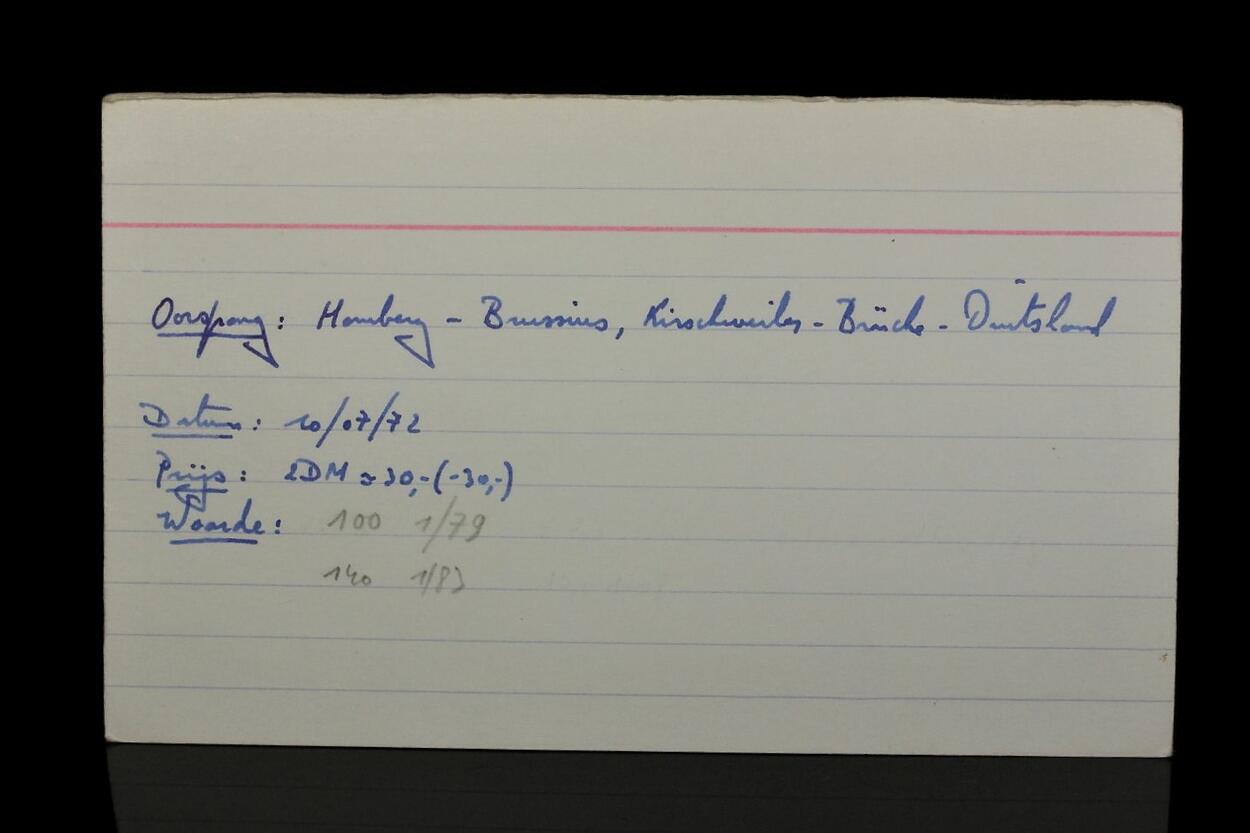 Oorspong: Homberg - Brussius, Kirschweiler - Brücke - Duitsland
Datum: 10/07/72
Prijs: 2DM ≈ 30,- (-30,-)
Waarde: 100 1/79
140 1/83